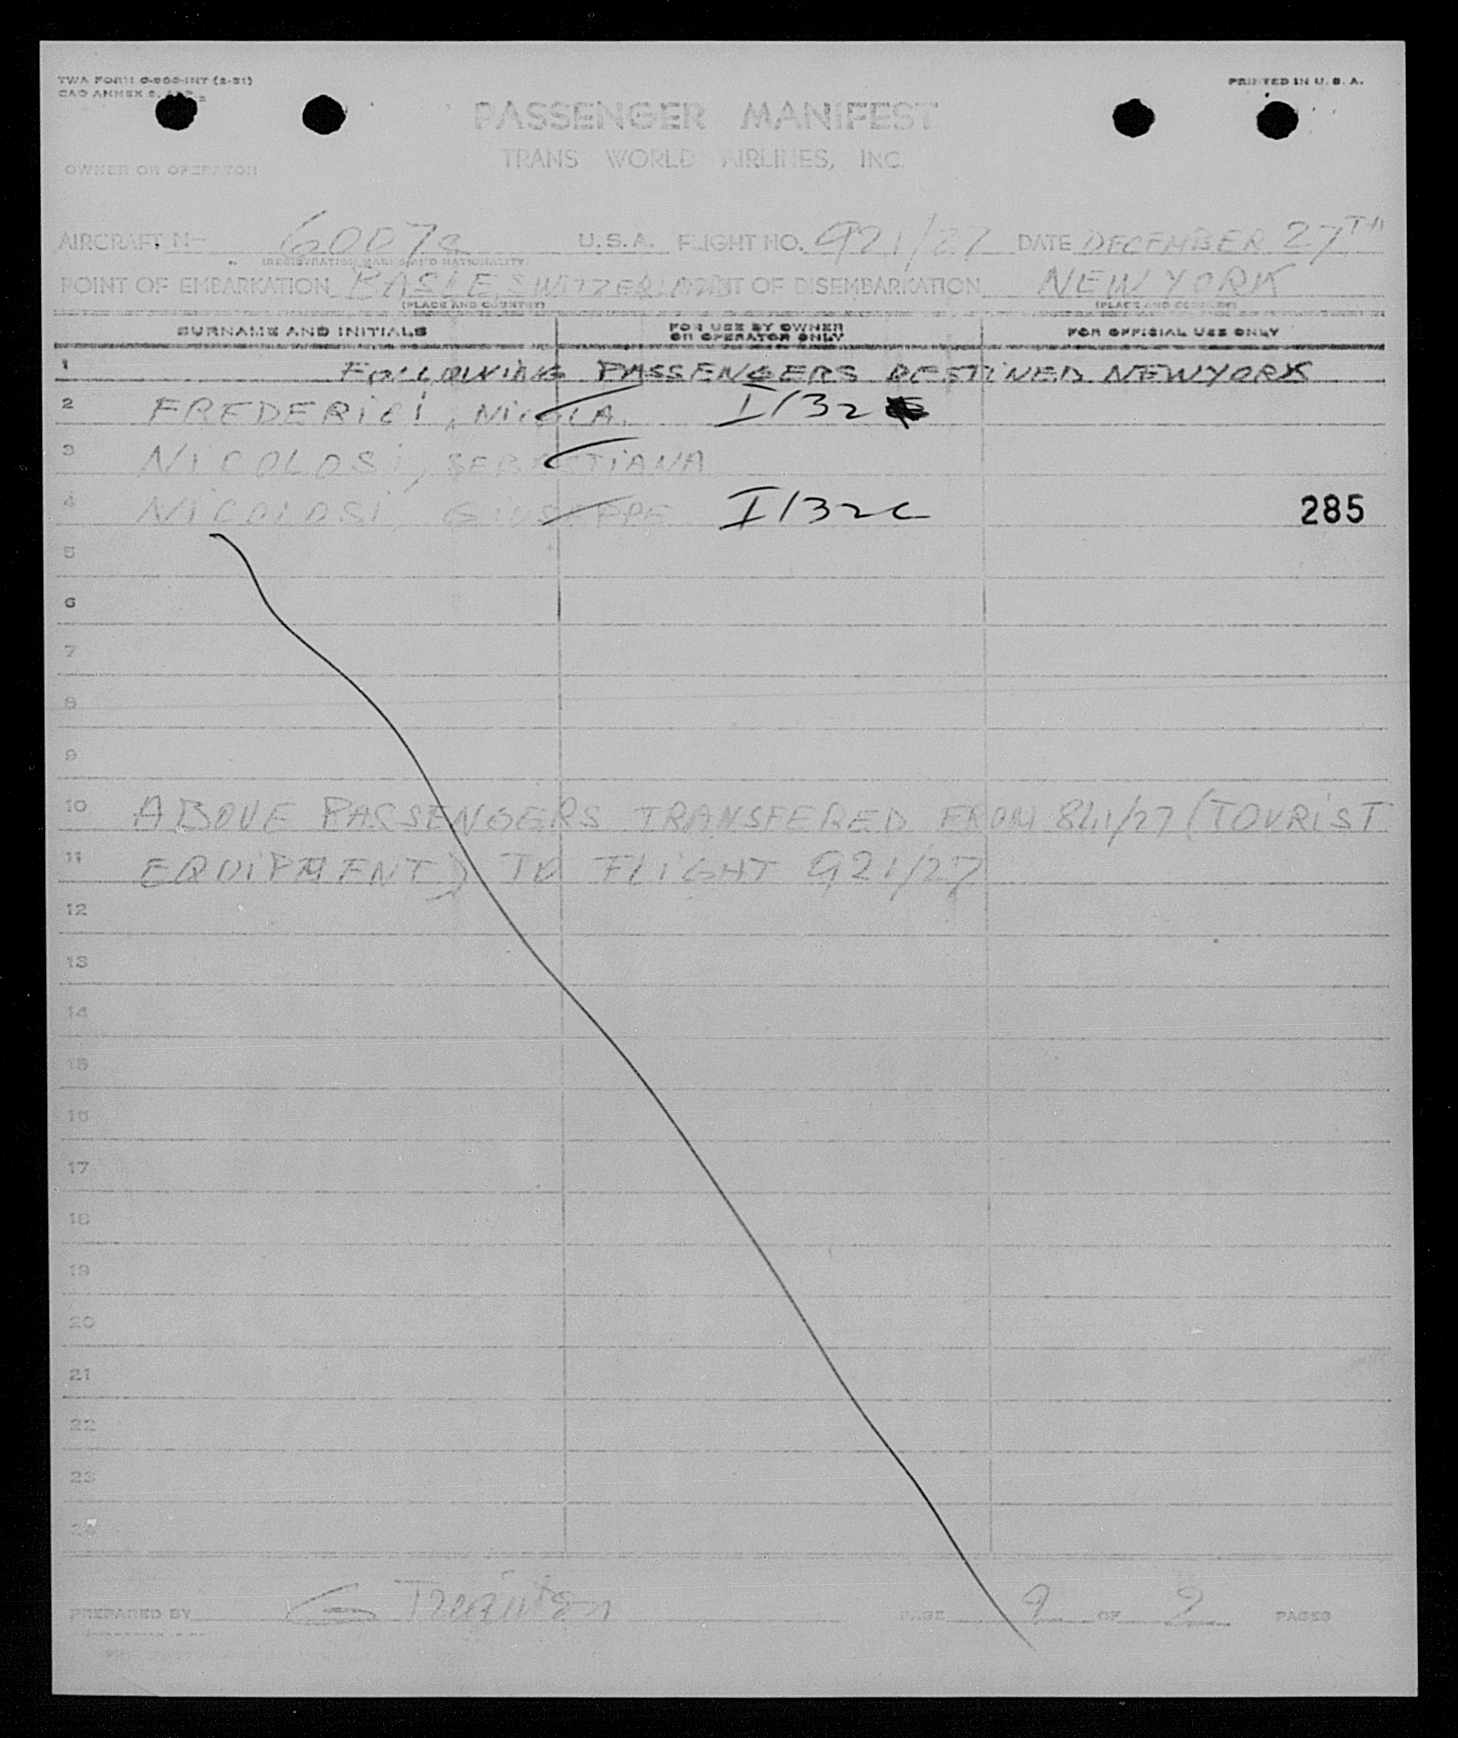 TWA FORM O-900-INT (2-51)
PRINTED IN U. S. A.
PASSENGER MANIFEST
TRANS WORLD AIRLINES, INC.
OWNER OR OPERATOR
AIRCRAFT N- 6007C U.S.A. FLIGHT NO. 921/27 DATE DECEMBER 27TH
(REGISTRATION MARKS AND NATIONALITY)
POINT OF EMBARKATION BASLE SWITZERLAND POINT OF DISEMBARKATION NEW YORK
(PLACE AND COUNTRY) (PLACE AND COUNTRY)
SURNAME AND INITIALS FOR USE BY OWNER OR OPERATOR ONLY FOR OFFICIAL USE ONLY
1 FOLLOWING PASSENGERS DESTINED NEWYORK
2 FREDERICI, NICOLA. I/32
3 NICOLOSI, SEBASTIANA
4 NICOLOSI, GIUSEPPE I/32C 285
5
6
7
8
9
10 ABOVE PASSENGERS TRANSFERED FROM 841/27 (TOURIST
11 EQUIPMENT) TO FLIGHT 921/27
12
13
14
15
16
17
18
19
20
21
22
23
24
PREPARED BY PAGE 9 OF 9 PAGES